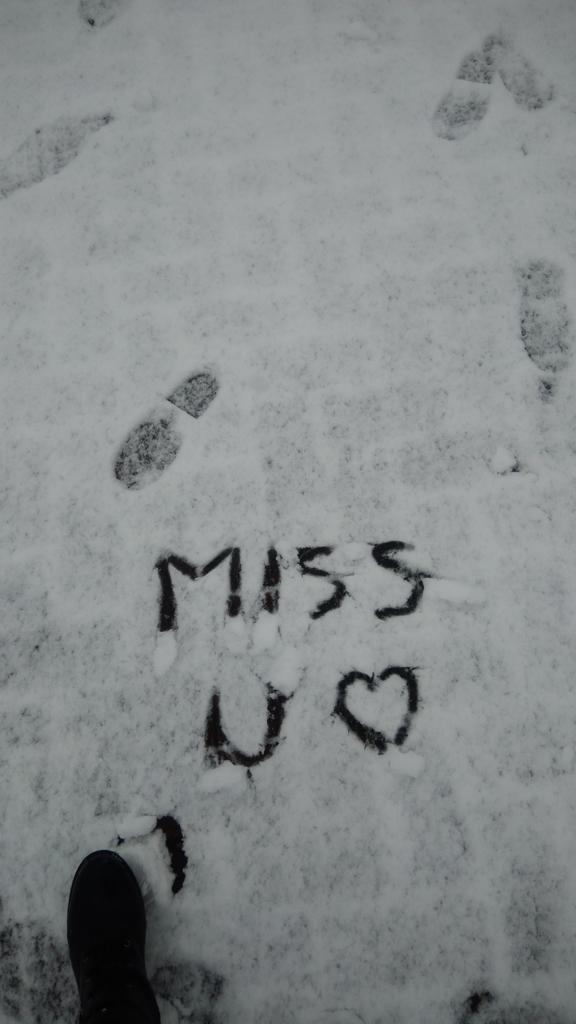 MISS
U ♡